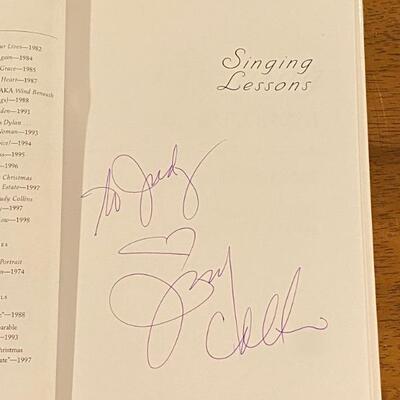 ur Lives—1982
gain—1984
Grace—1985
Heart—1987
AKA Wind Beneath
gs)—1988
den—1991
s Dylan . . .
Woman—1993
oice!—1994
ss—1995
—1996
Christmas
Estate—1997
udy Collins
y—1997
ow—1998
ES
Portrait
n—1974
LS
e"—1988
parable
—1993
hristmas
ate"—1997
Singing
Lessons
to Judy
Judy
Collins